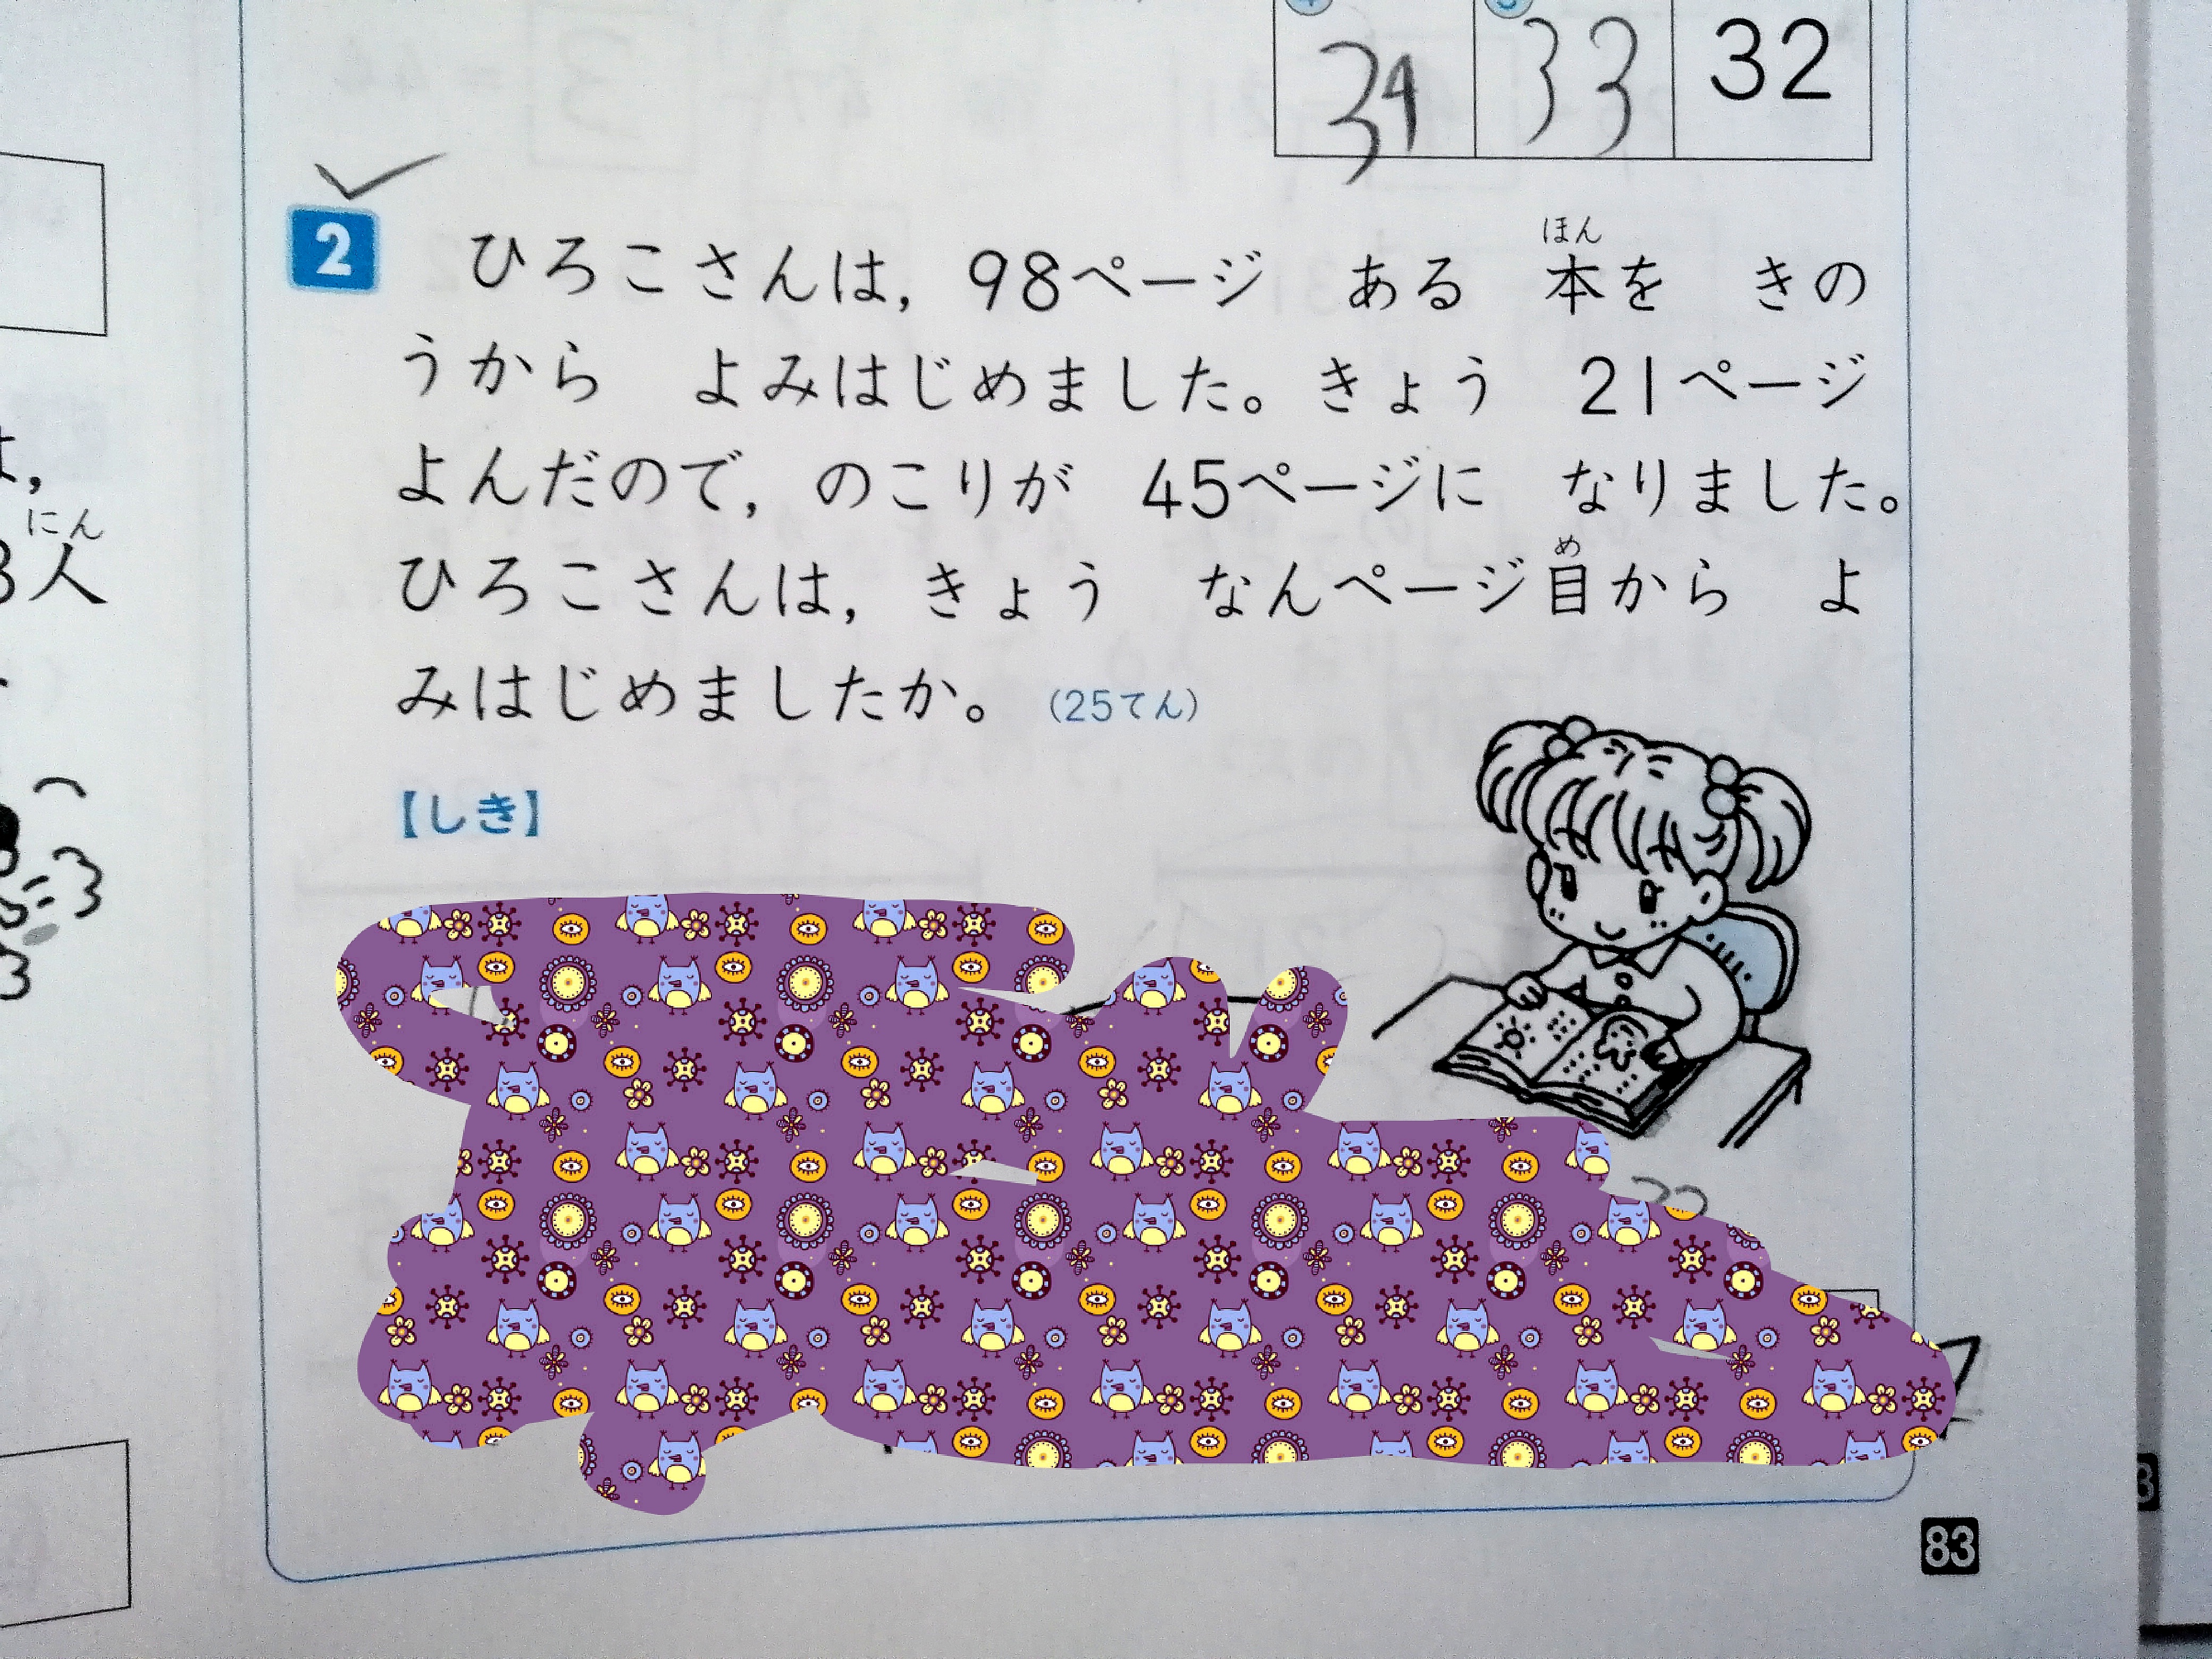 34 33 32
2 ひろこさんは，98ページ ある 本を きの
ほん
うから よみはじめました。きょう 21ページ
よんだので，のこりが 45ページに なりました。
ひろこさんは，きょう なんページ目から よ
め
みはじめましたか。 (25てん)
【しき】
83
にん
人